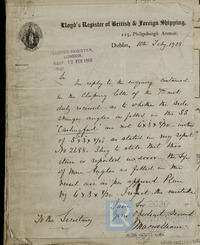 Lloyd's Register of British & Foreign Shipping,
115, Philipsburgh Avenue,
Dublin, 11th Feby 1918
LLOYD'S REGISTER,
LONDON.
RECD 12 FEB 1918
Sir
In reply to the enquiry contained
in the Shipping letter of the 7th inst
duly received as to whether the side
stringer angles as fitted in the SS
are not 6 x 3 x instead
of 3 x 3 x as stated in my report
No 2688. I beg to state that this
item is reported in error. The size
of these Angles as fitted in this
vessel are as per approved Plan
by 6 x 3 x. I regret the mistake
I am Sir
Your Obedient Servant
To the Secretary